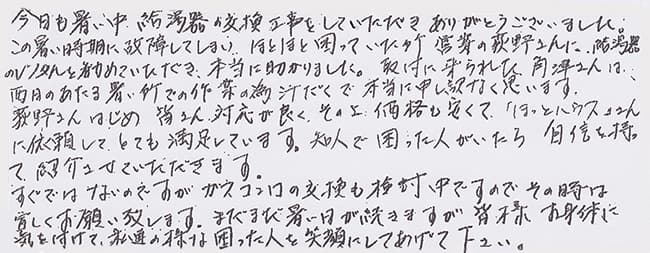 今日も暑い中 給湯器の交換工事をしていただき ありがとうございました。
この暑い時期に故障してしまい、ほとほと困っていたが 営業の荻野さんに、給湯器
のレンタルを勧めていただき、本当に助かりました。取付に来られた 角澤さんは、
西日のあたる暑い所での作業の為 汁だくで 本当に申し訳なく思います。
荻野さんはじめ 皆さん 対応が良く、その上、価格も安くて、「ほっとハウス」さん
に依頼して、とても 満足しています。知人で 困った人がいたら 自信を持っ
て、紹介させていただきます。
すぐではないのですが ガスコンロの交換も検討中ですので その時は
宜しくお願い致します。まだまだ暑い日が続きますが 皆様 お身体に
気を付けて、私達の様な困った人を笑顔にしてあげて下さい。